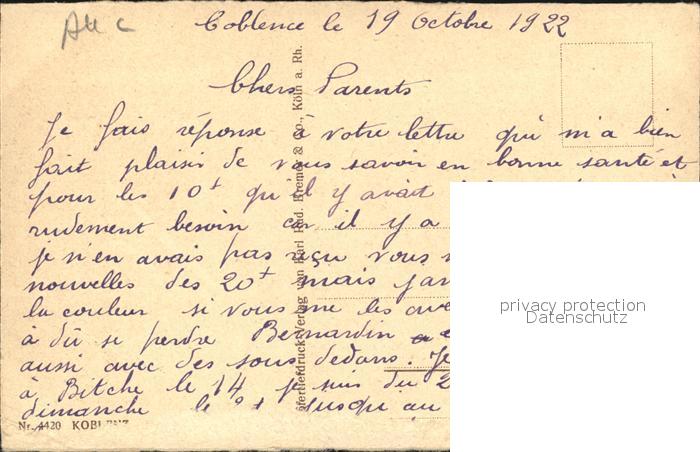 Coblence le 19 Octobre 1922
Chers Parents
Je fais réponse à votre lettre qui m'a bien
fait plaisir de vous savoir en bonne santé et
pour les 10f qu'il y avait
rudement besoin car il y a
je n'en avais pas reçu vous
nouvelles des 20f mais
la couleur si vous me les
à dû se perdre Bernardin
aussi avec des sous dedans. Je
à Bitche le 14 je suis du 2
dimanche le jusqu'au
Nr. 4420 KOBLENZ
Kupfertiefdruck-Verlag von Karl Rud. Bremer & Co., Köln a. Rh.
privacy protection
Datenschutz